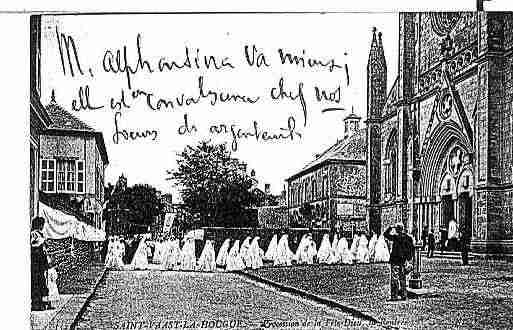 M. alphontina va mieux;
elle est en convalescence chez nos
soeurs d'argenteuil
SAINT-VAAST-LA-HOUGUE. - Procession de la Fête-Dieu